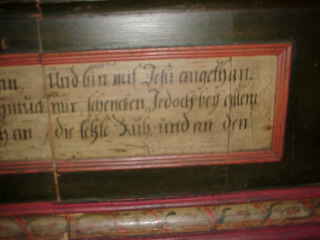 Und bin mit Jesu angethan.
nur schencken, Jedoch bey allem
die letzte Ruh, und an den